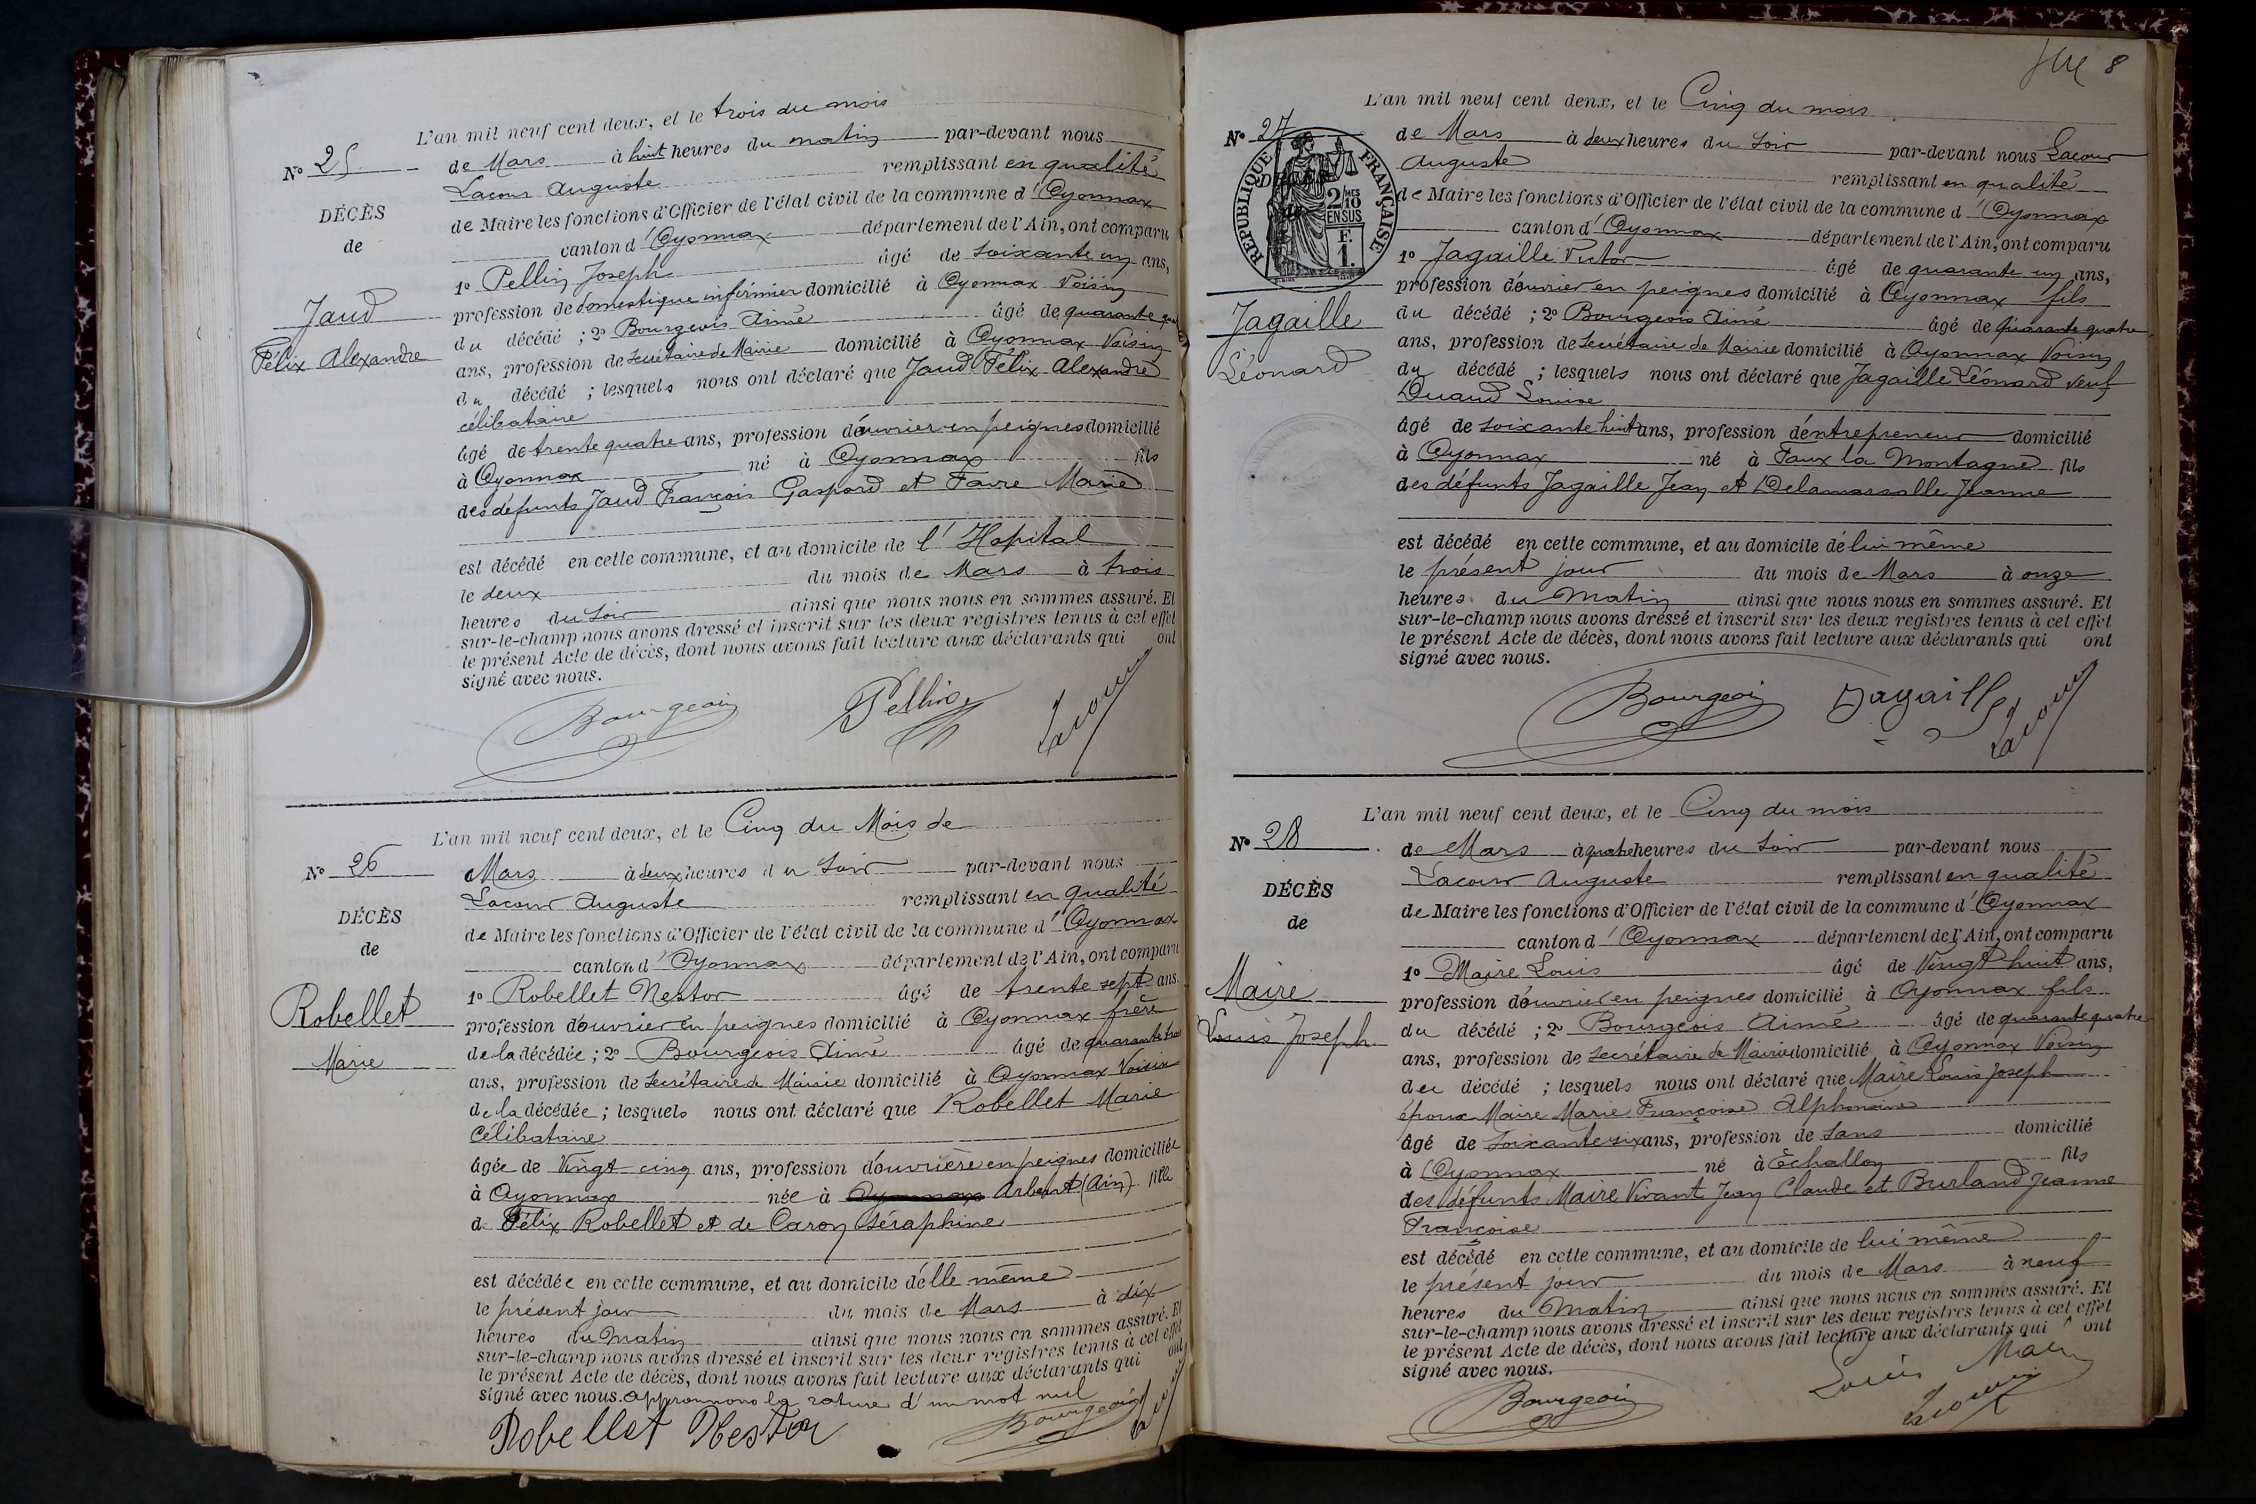 L'an mil neuf cent deux, et le trois du mois
No 25 de Mars à huit heures du matin par-devant nous
Lacour Auguste remplissant en qualité
DÉCÈS
de
de Maire les fonctions d'Officier de l'état civil de la commune d'Oyonnax
canton d'Oyonnax département de l'Ain, ont comparu
1o Pellin Joseph âgé de soixante un ans,
profession de domestique infirmier domicilié à Oyonnax Voisin
Jaud
Félix Alexandre
du décédé ; 2o Bourgeois Aimé âgé de quarante
ans, profession de secrétaire de Mairie domicilié à Oyonnax Voisin
du décédé ; lesquels nous ont déclaré que Jaud Félix Alexandre
célibataire
âgé de trente quatre ans, profession d'ouvrier en peignes domicilié
à Oyonnax né à Oyonnax fils
des défunts Jaud François Gaspard et Favre Marie
est décédé en cette commune, et au domicile de l'Hopital
le deux du mois de Mars à trois
heures du soir ainsi que nous nous en sommes assuré. Et
sur-le-champ nous avons dressé et inscrit sur les deux registres tenus à cet effet
le présent Acte de décès, dont nous avons fait lecture aux déclarants qui ont
signé avec nous.
Bourgeois Pellin Lacour
L'an mil neuf cent deux, et le Cinq du Mois de
No 26 Mars à deux heures du soir par-devant nous
Lacour Auguste remplissant en qualité
DÉCÈS
de
de Maire les fonctions d'Officier de l'état civil de la commune d'Oyonnax
canton d'Oyonnax département de l'Ain, ont comparu
1o Robellet Nestor âgé de trente sept ans
Robellet
Marie
profession d'ouvrier en peignes domicilié à Oyonnax frère
de la décédée ; 2o Bourgeois Aimé âgé de quarante
ans, profession de secrétaire de Mairie domicilié à Oyonnax Voisin
de la décédée ; lesquels nous ont déclaré que Robellet Marie
Célibataire
âgée de Vingt cinq ans, profession d'ouvrière en peignes domiciliée
à Oyonnax née à Oyonnax Arbent (Ain) fille
de Félix Robellet et de Caron Séraphine
est décédée en cette commune, et au domicile d'elle même
le présent jour du mois de Mars à dix
heures du Matin ainsi que nous nous en sommes assuré. Et
sur-le-champ nous avons dressé et inscrit sur les deux registres tenus à cet effet
le présent Acte de décès, dont nous avons fait lecture aux déclarants qui ont
signé avec nous. Approuvons la rature d'un mot nul
Robellet Nestor Bourgeois Lacour
8
L'an mil neuf cent deux, et le Cinq du mois
No 27 de Mars à deux heures du soir par-devant nous Lacour
Auguste remplissant en qualité
DÉCÈS
de
RÉPUBLIQUE FRANÇAISE
2/10 MES
EN SUS
F.
1.
de Maire les fonctions d'Officier de l'état civil de la commune d'Oyonnax
canton d'Oyonnax département de l'Ain, ont comparu
1o Jagaille Victor âgé de quarante un ans,
profession d'ouvrier en peignes domicilié à Oyonnax fils
Jagaille
Léonard
du décédé ; 2o Bourgeois Aimé âgé de quarante quatre
ans, profession de secrétaire de Mairie domicilié à Oyonnax Voisin
du décédé ; lesquels nous ont déclaré que Jagaille Léonard veuf
Durand Louise
âgé de soixante huit ans, profession d'entrepreneur domicilié
à Oyonnax né à Faux la Montagne fils
des défunts Jagaille Jean et Delamarsalle Jeanne
est décédé en cette commune, et au domicile de lui même
le présent jour du mois de Mars à onze
heures du Matin ainsi que nous nous en sommes assuré. Et
sur-le-champ nous avons dressé et inscrit sur les deux registres tenus à cet effet
le présent Acte de décès, dont nous avons fait lecture aux déclarants qui ont
signé avec nous.
Bourgeois Jagaille Lacour
L'an mil neuf cent deux, et le Cinq du mois
No 28 de Mars à quatre heures du soir par-devant nous
Lacour Auguste remplissant en qualité
DÉCÈS
de
de Maire les fonctions d'Officier de l'état civil de la commune d'Oyonnax
canton d'Oyonnax département de l'Ain, ont comparu
1o Maire Louis âgé de Vingt huit ans,
Maire
Louis Joseph
profession d'ouvrier en peignes domicilié à Oyonnax fils
du décédé ; 2o Bourgeois Aimé âgé de quarante quatre
ans, profession de secrétaire de Mairie domicilié à Oyonnax Voisin
du décédé ; lesquels nous ont déclaré que Maire Louis Joseph
époux Maire Marie Françoise Alphonsine
âgé de soixante six ans, profession de sans domicilié
à Oyonnax né à Echallon fils
des défunts Maire Vivant Jean Claude et Burland Jeanne
Françoise
est décédé en cette commune, et au domicile de lui même
le présent jour du mois de Mars à neuf
heures du Matin ainsi que nous nous en sommes assuré. Et
sur-le-champ nous avons dressé et inscrit sur les deux registres tenus à cet effet
le présent Acte de décès, dont nous avons fait lecture aux déclarants qui ont
signé avec nous.
Bourgeois Louis Maire Lacour